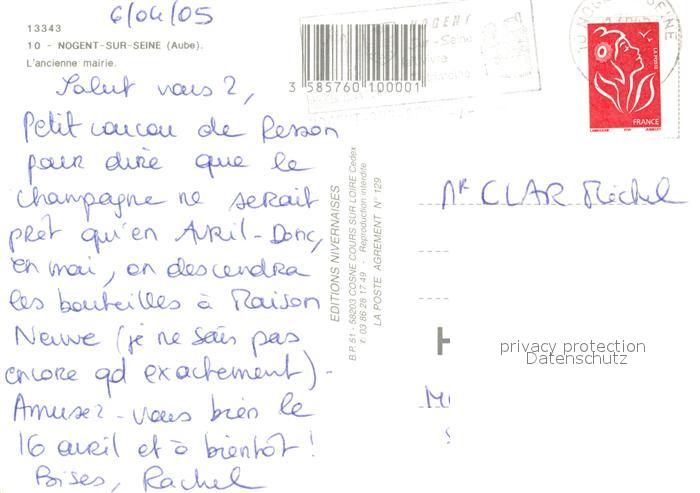 6/04/05
13343
10 - NOGENT-SUR-SEINE (Aube).
L'ancienne mairie.
Salut vous 2,
Petit coucou de Resson
pour dire que le
champagne ne serait
prêt qu'en Avril - Donc,
en mai, on descendra
les bouteilles à Maison
Neuve (je ne sais pas
encore qd exactement) -
Amusez-vous bien le
16 avril et à bientôt !
Bises, Rachel
3 585760 100001
EDITIONS NIVERNAISES
B.P. 51 - 58203 COSNE COURS SUR LOIRE Cedex
t. 03 86 28 17 49 - Reproduction interdite
LA POSTE AGREMENT N° 129
NOGENT
sur-Seine
LA POSTE
FRANCE
Mr CLAR Michel
H
privacy protection
Datenschutz